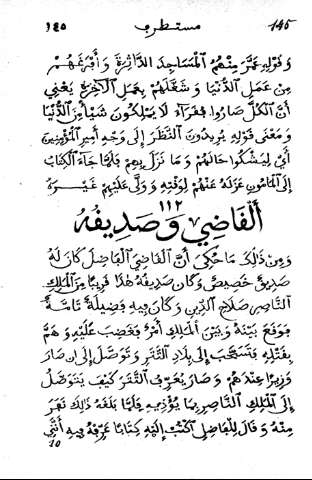 ١٤٥ مستطرف 145
وَقَوْلِهِ عَمَّرَ مِنْهُمُ ٱلْمَسَاجِدَ ٱلدَّاثِرَةَ وَأَفْرَغَهُمْ
مِنْ عَمَلِ ٱلدُّنْيَا وَشَغَّلَهُمْ بِعَمَلِ ٱلْآخِرَةِ يَعْنِي
أَنَّ ٱلْكُلَّ صَارُوا فُقَرَاءَ لَا يَمْلِكُونَ شَيْأً مِنَ ٱلدُّنْيَا
وَمَعْنَى قَوْلِهِ يُرِيدُونَ ٱلنَّظَرَ إِلَى وَجْهِ أَمِيرِ ٱلْمُؤْمِنِينَ
أَيْ لِيَشْكُوا حَالَهُمْ وَمَا نَزَلَ بِهِمْ فَلَمَّا جَاءَ ٱلْكِتَابُ
إِلَى ٱلْمَأْمُونِ عَزَلَهُ عَنْهُمْ لِوَقْتِهِ وَوَلَّى عَلَيْهِمْ غَيْرَهُ
١١٢
أَلْقَاضِي وَصَدِيقُهُ
وَمِنْ ذٰلِكَ مَا حُكِيَ أَنَّ ٱلْقَاضِيَ ٱلْفَاضِلَ كَانَ لَهُ
صَدِيقٌ خَصِيصٌ وَكَانَ صَدِيقُهُ هٰذَا قَرِيبًا مِنَ ٱلْمَلِكِ
ٱلنَّاصِرِ صَلَاحِ ٱلدِّينِ وَكَانَ فِيهِ فَضِيلَةٌ تَامَّةٌ
فَوَقَعَ بَيْنَهُ وَبَيْنَ ٱلْمَلِكِ أَمْرٌ فَغَضِبَ عَلَيْهِ وَهَمَّ
بِقَتْلِهِ فَتَسَحَّبَ إِلَى بِلَادِ ٱلتَّتَرِ وَتَوَصَّلَ إِلَى أَنْ صَارَ
وَزِيرًا عِنْدَهُمْ وَصَارَ يُعَرِّفُ ٱلتَّتَرَ كَيْفَ يَتَوَصَّلُ
إِلَى ٱلْمَلِكِ ٱلنَّاصِرِ بِمَا يُؤْذِيهِ فَلَمَّا بَلَغَهُ ذٰلِكَ نَفَرَ
مِنْهُ وَقَالَ لِلْفَاضِلِ ٱكْتُبْ إِلَيْهِ كِتَابًا عَرِّفْهُ فِيهِ أَنَّنِي
10